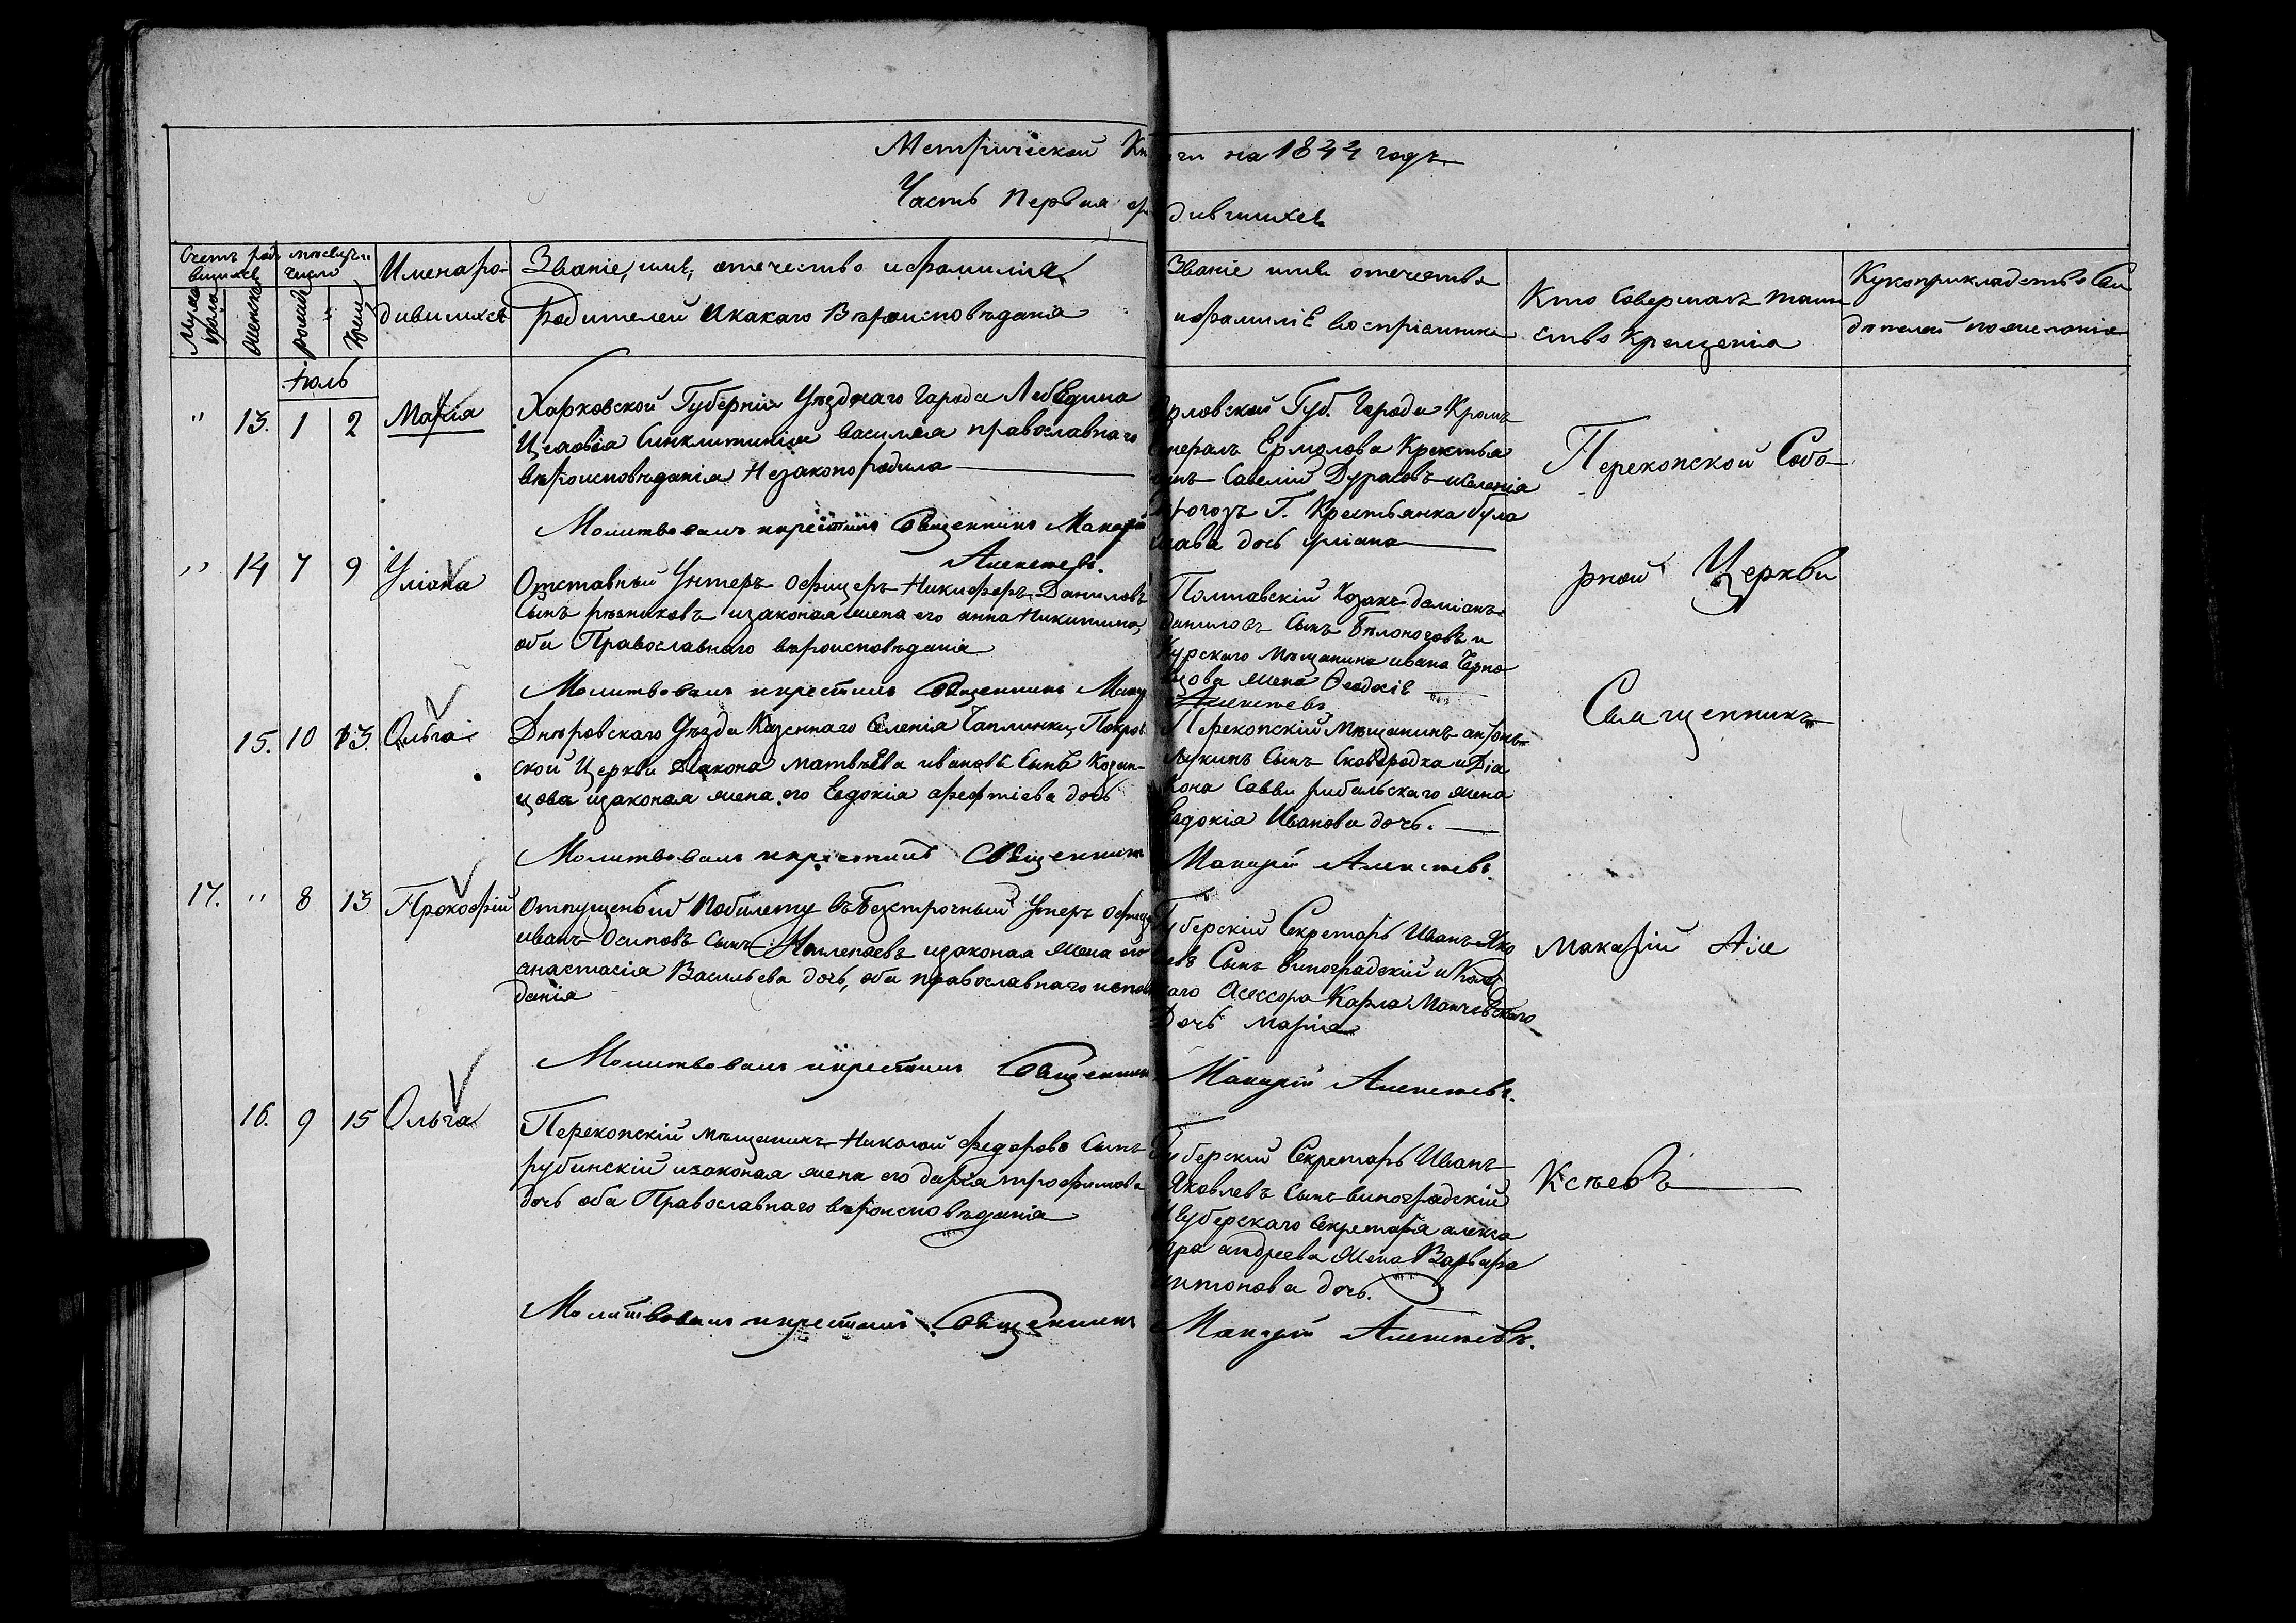 Метрической Книги на 1844 годъ
Часть Первая о родившихся
Счетъ родившихся
Мужеска пола
Женска
Месяцъ и число
рожденія
Крещенія
Имена родившихся
Званіе, имя, отечество и фамилія
Родителей и какаго Вѣроисповѣданія
Званіе имя отечество
и фамиліе воспріемника
Кто Совершалъ таин
ство Крещенія
Рукоприкладство Сви
дѣтелей по желанію
Іюль
" 13. 1 2 Марія
Харковской Губерніи Уезднаго Города Лебедина
Синклитикія Васильева православнаго
вѣроисповѣданія Незаконородила
Молитвовалъ и крестилъ Священникъ Макарій
Алексѣевъ.
Орловской Губ. Города Кромъ
Генералъ Ермолова Крестья
нинъ Савелій Дураковъ
Г. Крестьянка
дочь уліана
" 14 7 9 Уліана
Отставный Унтеръ Офицеръ Никифоръ Даниловъ
Сынъ рѣзниковъ и законая жена его анна Никитина,
оба Православнаго вѣроисповѣданія
Молитвовалъ и крестилъ Священникъ Макарій
Алексѣевъ
Полтавскій Козакъ даміанъ
даниловъ Сынъ Бѣлоноговъ и
Курскаго Мѣщанина ивана Черно
жена Феодосіе
15. 10 13. Ольга
Днѣпровскаго Уѣзда Казеннаго Селенія Чаплинки, Покров
ской Церкви Діакона матвѣева ивановъ Сынъ Казан
цова и законая жена его Евдокія арефтіева дочь
Молитвовалъ и крестилъ Священникъ Макарій Алексѣевъ.
Перекопскій Мѣщанинъ антонъ
Лукинъ Сынъ Сковородка и Діа
кона Саввы рибальскаго жена
Евдокія Иванова дочь.
17. " 8 13 Прокофій
Отпущеный Побилету въ Безсрочный Унтеръ Офице
иванъ Осиповъ Сынъ и законая жена его
анастасія Васильева дочь, оба православнаго испове
данія
Молитвовалъ и крестилъ Священникъ Макарій Алексѣевъ.
Губерскій Секретарь Иванъ Яко
левъ Сынъ виноградскій и Кол
каго Асессора Карла Манчевскаго
Дочь марія
16. 9 15 Ольга
Перекопскій мѣщанинъ Николай федоровъ Сынъ
рубинскій и законая жена его дарія трофимова
дочь оба Православнаго вѣроисповѣданія
Молитвовалъ и крестилъ Священникъ Макарій Алексѣевъ.
Губерскій Секретарь Иванъ
Яковлевъ Сынъ виноградскій
И губерскаго Секретаря алекса
ндра андреева жена Варвара
антонова дочь.
Перекопской Собо
рной Церкви
Священникъ
Макарій Але
Ксѣевъ